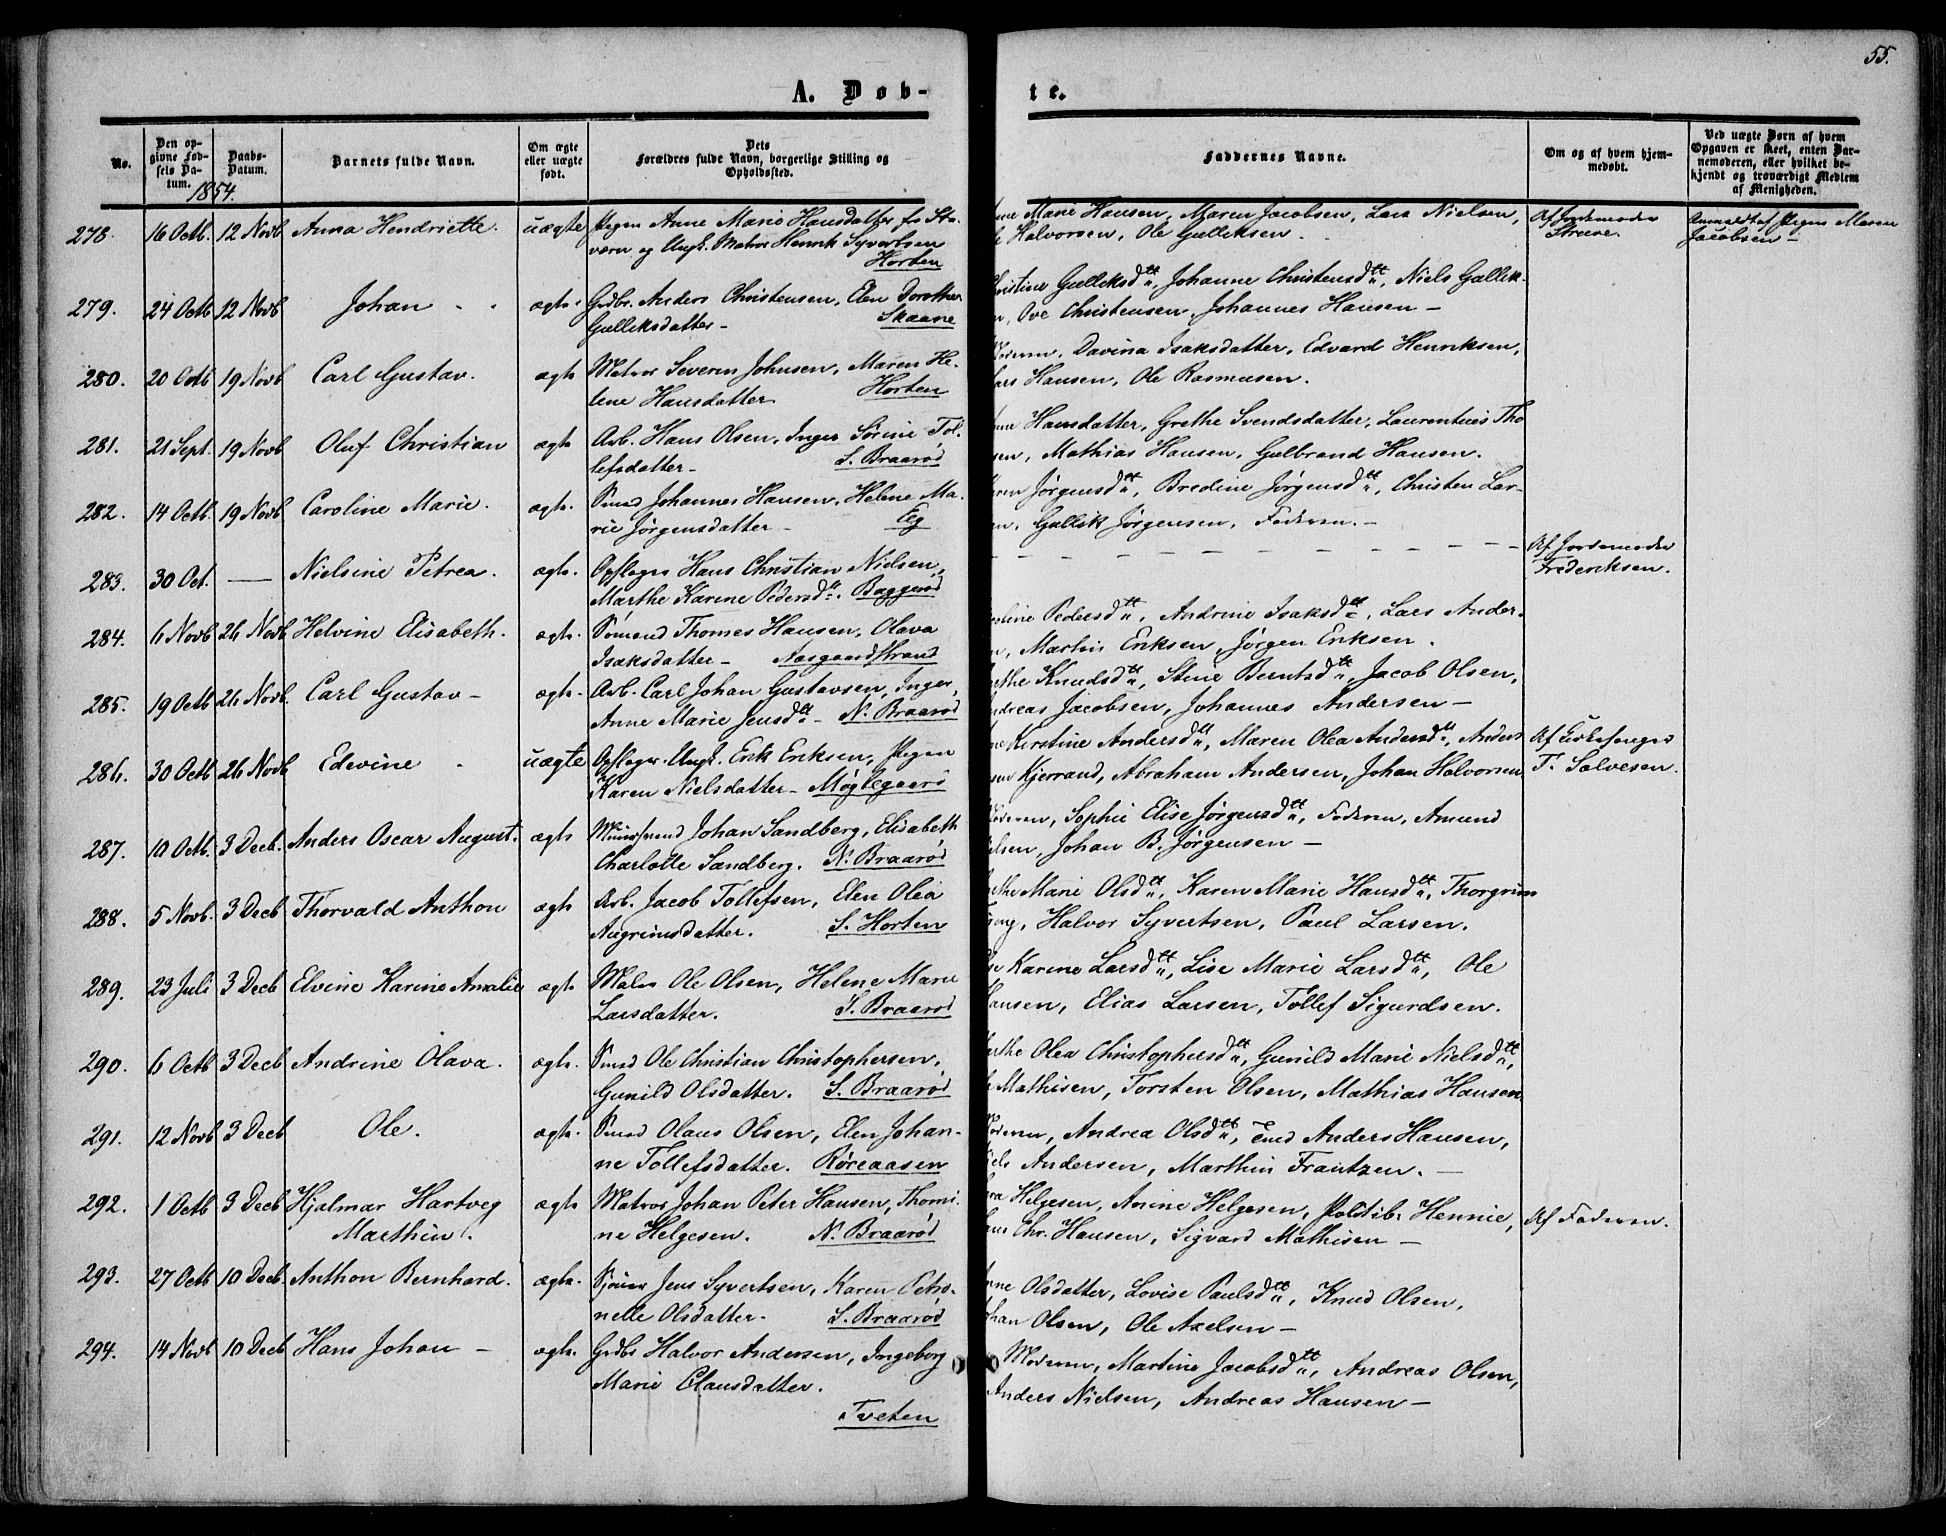 55.
A. Døb-
te.
No.
Den op-
givne Fød-
sels Da-
tum.
Daabs-
Datum.
Barnets fulde Navn.
Om ægte
eller uægte
født.
Dets
Forældres fulde Navn, borgerlige Stilling og
Opholdssted.
Faddernes Navne.
Om og af hvem hjem-
medøbt.
Ved uægte Børn af hvem
Opgaven er skeet, enten Bar-
nemoderen, eller hvilket be-
kjendt og troværdigt Medlem
af Menigheden.
1854.
278. 16 Octb. 12 Novb Anna Hendriette. uægte Pigen Anne Marie Hansdatter fr Sta-
værn og Ungk. Matros Henrik Syvertsen
Horten
Marie Hansen, Maren Jacobsen, Lars Nielsen,
Halvorsen, Ole Gulliksen.
Af Jordemoder
Struve.
Anmeldt af Pigen Maren
Jacobsen —
279. 24 Octb 12 Novb Johan ægte. Gdbr. Anders Christensen, Elen Dorothea
Gulleksdatter — Skaane
Gulleksdtt, Johanne Christensdtt, Niels Gullik-
Ove Christensen, Johannes Hansen —
280. 20 Octb 19 Novb Carl Gustav. ægte Matros Severin Johnsen, Maren He-
lene Hansdatter Horten
Davina Isaksdatter, Edvard Henriksen,
Hansen, Ole Rasmusen.
281. 21 Sept. 19 Novb Oluf Christian ægte Arb. Hans Olsen, Inger Sørine Tol-
lefsdatter — S. Braarød
Hansdatter, Grethe Svendsdatter, Laurentius Tho
Mathias Hansen, Gulbrand Hansen.
282. 14 Octb. 19 Novb Caroline Marie. ægte. Smed Johannes Hansen, Helene Ma-
rie Jørgensdatter — Eeg
Jørgensdtt, Bredine Jørgensdtt, Christen Lar-
Gullik Jørgensen, Faderen. —
283. 30 Oct. — Nielsine Petrea. ægte. Opflager Hans Christian Nielsen,
Marthe Karine Pedersdtt. Baggerød
Af Jordemoder
Frederiksen.
284. 6 Novb 26 Novb Helvine Elisabeth. ægte. Sømand Thomas Hansen, Olava
Isaksdatter — Aasgaardstrand
Pedersdtt, Andrine Isaksdtt, Lars Ander-
Martin Eriksen, Jørgen Eriksen.
285. 19 Octb 26 Novb. Carl Gustav — ægte. Arb. Carl Johan Gustavsen, Inger
Anne Marie Jensdtt — N. Braarød
Knudsdtt, Stine Berntsdtt, Jacob Olsen,
Jacobsen, Johannes Andersen —
286. 30 Octb 26 Novb Edevine uægte Opflager Ungk. Erik Eriksen, Pigen
Karen Nielsdatter — Møglegaard
Kirstine Andersdtt, Maren Olea Andersdtt, Anders
Kjerrand, Abraham Andersen, Johan Halvorsen
Af Kirkesanger
T. Salvesen.
287. 10 Octb. 3 Decb. Anders Oscar August. ægte Johan Sandberg, Elisabeth
Charlotte Sandberg. N. Braarød
Sophie Elise Jørgensdtt, Faderen, Amund
Johan B. Jørgensen —
288. 5 Novb. 3 Decb Thorvald Anthon ægte Arb. Jacob Tollefsen, Elen Olea
Augrimsdatter. S. Horten
Marie Olsdtt, Karen Marie Hansdtt, Thorgrim
Halvor Syvertsen, Paul Larsen.
289. 23 Juli 3 Decb Elvine Karine Amalie ægte Ole Olsen, Helene Marie
Larsdatter. S. Braarød
Karine Larsdtt, Lise Marie Larsdtt, Ole
Hansen, Elias Larsen, Tollef Sigurdsen.
290. 6 Octb 3 Decb Andrine Olava. ægte. Smed Ole Christian Christophersen,
Gunild Olsdatter. S. Braarød
Olea Christophersdtt, Gunild Marie Nielsdtt,
Mathisen, Torsten Olsen, Mathias Hansen
291. 12 Novb 3 Decb Ole. ægte. Smed Olaus Olsen, Elen Johan-
ne Tollefsdatter. Røreaasen
Andrea Olsdtt, Anders Hansen,
Andersen, Marthin Frantzen. —
292. 1 Octb 3 Decb Hjalmar Hartveg
Marthin. ægte Matros Johan Peter Hansen, Thomi-
ne Helgesen. N. Braarød
Helgesen, Anine Helgesen, Hennie,
Chr. Hansen, Sigvard Mathisen —
Af Faderen.
293. 27 Octb 10 Decb. Anthon Bernhard. ægte. Jens Syvertsen, Karen Petro-
nelle Olsdatter. S. Braarød
Olsdatter, Lovise Paulsdtt, Knud Olsen,
Olsen, Ole Axelsen —
294. 14 Novb 10 Decb Hans Johan — ægte. Gdbr Halvor Andersen, Ingeborg
Marie Clausdatter.
Tveten
Moderen, Martine Jacobsdtt, Andreas Olsen,
Anders Nielsen, Andreas Hansen —